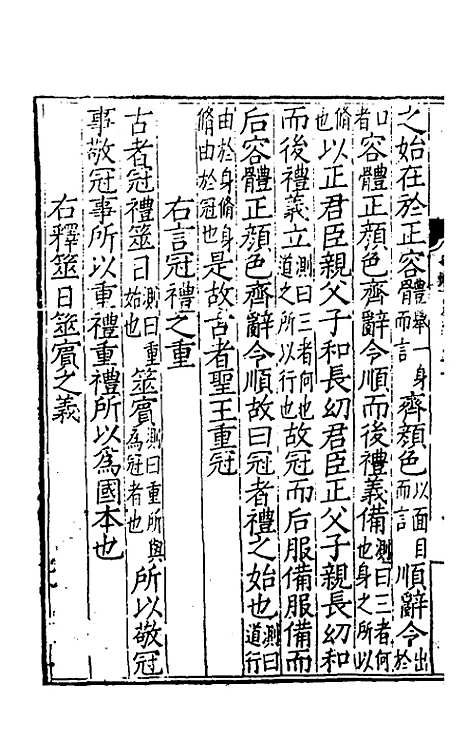 之始在於正容體舉一身而言齊顔色以面目而言順辭令出於
口者容體正顔色齊辭令順而後禮義備測曰三者何也身之所以
脩也以正君臣親父子和長幼君臣正父子親長幼和
而後禮義立測曰三者何也道之所以行也故冠而后服備服備而
后容體正顔色齊辭令順故曰冠者禮之始也測曰道行
由於身脩身脩由於冠也是故古者聖王重冠
右言冠禮之重
古者冠禮筮日測曰重始也筮賓測曰重所與爲冠者也所以敬冠
事敬冠事所以重禮重禮所以爲國本也
右釋筮日筮賓之義